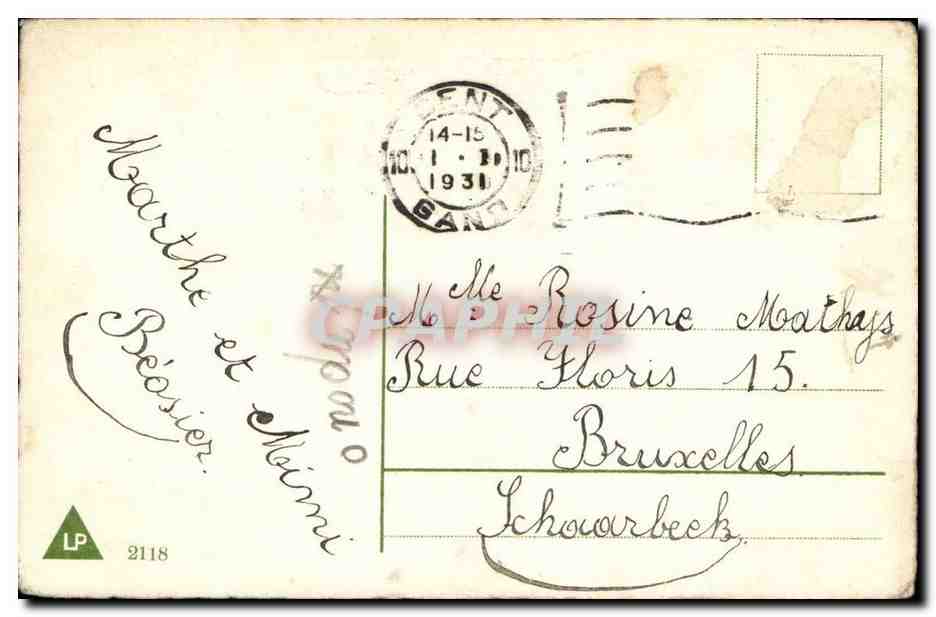 GENT
14-15
10 1 · II 10
1931
GAND
Marthe et Mimi
Béosier.
M Mlle Rosine Mathys
Rue Floris 15.
Bruxelles
Schaarbeek.
CPAPHIL
LP
2118